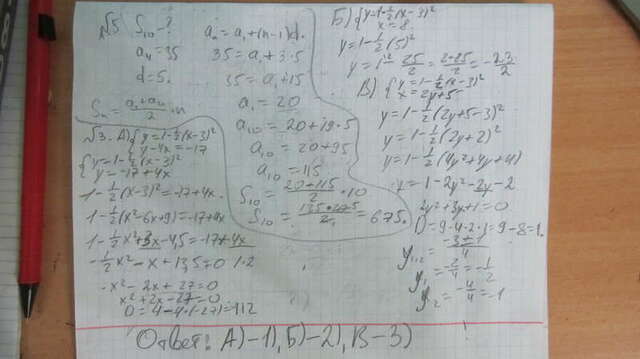 √5) S₁₀ - ?
a₄ = 35
d = 5.
Sₙ = (a₁ + aₙ)/2 · n
aₙ = a₁ + (n-1)d.
35 = a₁ + 3·5
35 = a₁ + 15
a₁ = 20
a₁₀ = 20 + 19·5
a₁₀ = 20 + 95
a₁₀ = 115
S₁₀ = (20 + 115)/2 · 10
= 675.
√3. А) { y = 1 - ½(x-3)²
y - 4x = -17
{ y = 1 - ½(x-3)²
y = -17 + 4x
1 - ½(x-3)² = -17 + 4x
1 - ½(x² - 6x + 9) = -17 + 4x
1 - ½x² + 3x - 4,5 = -17 + 4x
-½x² - x + 13,5 = 0 |·2
-x² - 2x + 27 = 0
x² + 2x - 27 = 0
D = 4 - 4·(-27) = 112
Б) { y = 1 - ½(x-3)²
x = 8
y = 1 - ½(5)²
y = 1 - 25/2 = (2-25)/2 = -23/2
В) { y = 1 - ½(x-3)²
x = 2y + 5
y = 1 - ½(2y + 5 - 3)²
y = 1 - ½(2y + 2)²
y = 1 - ½(4y² + 4y + 4)
y = 1 - 2y² - 2y - 2
2y² + 3y + 1 = 0
D = 9 - 4·2·1 = 9 - 8 = 1.
y₁,₂ = (-3 ± 1)/4
y₁ = -2/4 = -1/2
y₂ = -4/4 = -1
Ответ: А) - 1), Б) - 2), В - 3)